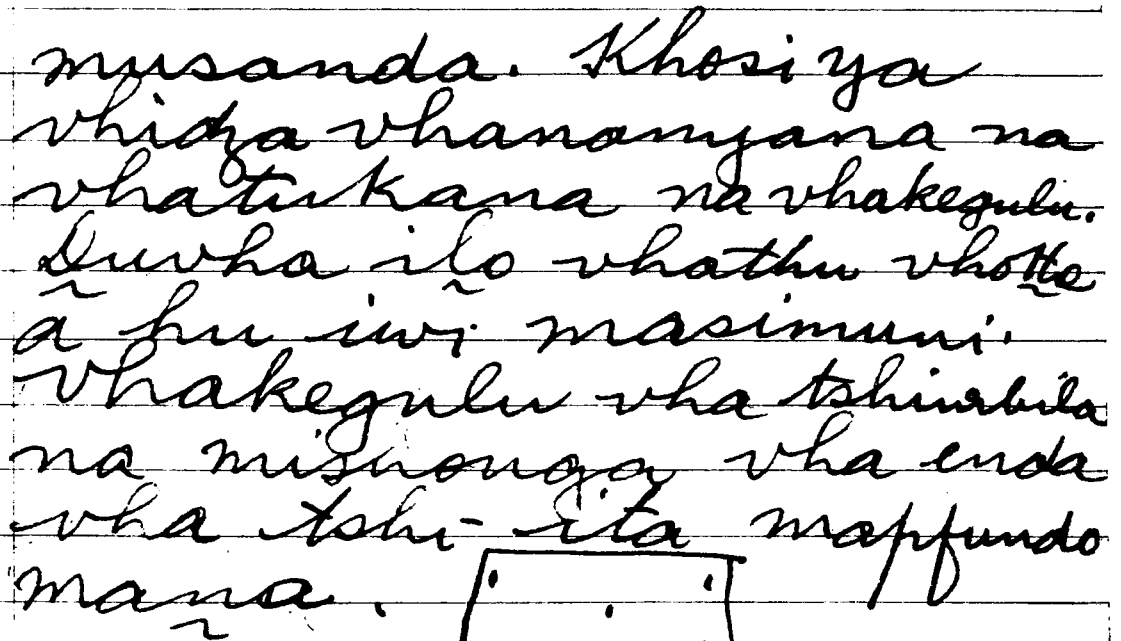 musanda. Khosi ya
vhidza vhanonyana na
vhatukana na vhakegulu.
Ḓuvha iḽo vhathu vhoṱhe
a hu iwi masimuni.
Vhakegulu vha tshimbila
na vha enda
vha tshi-ita mapfundo
maṋa.